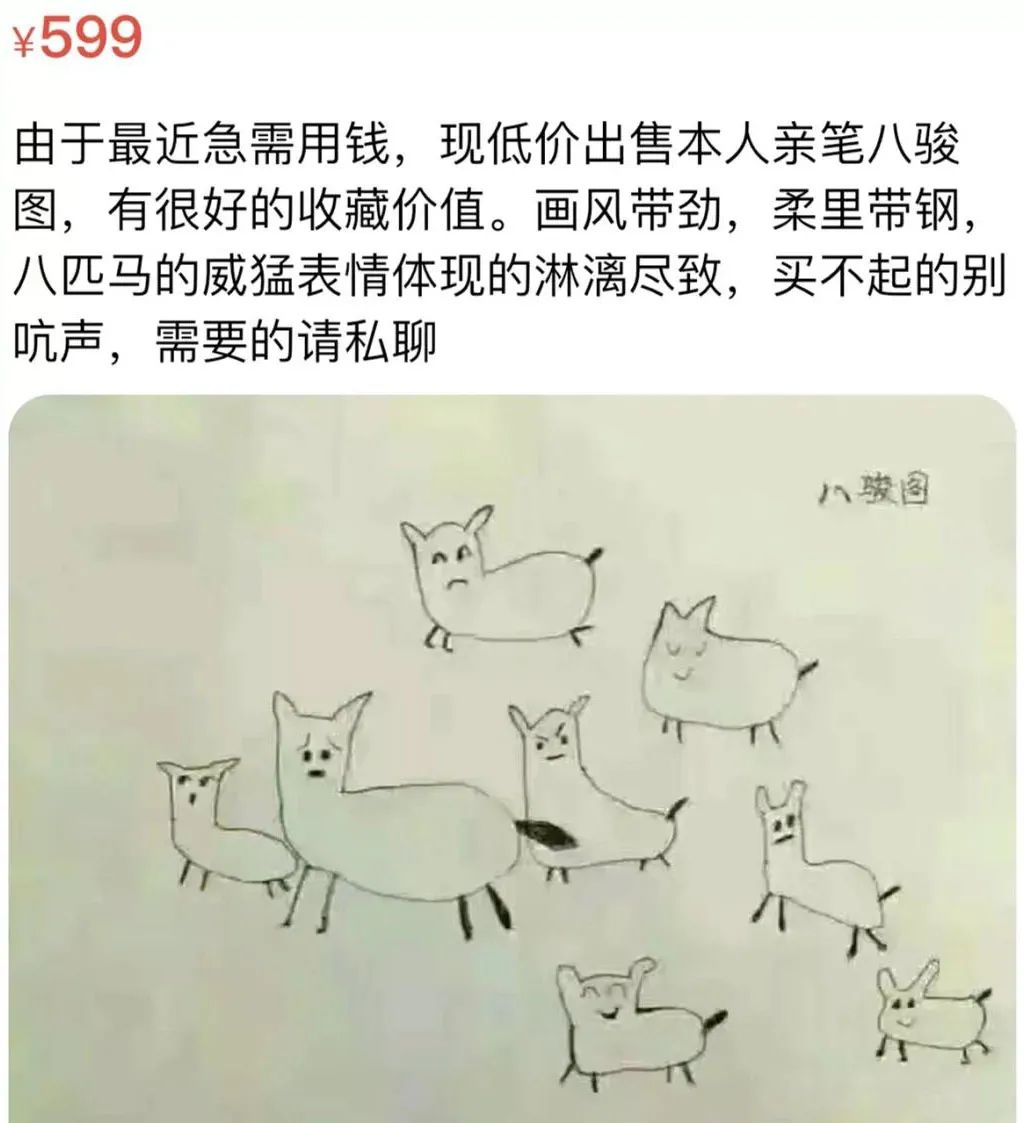 ¥599
由于最近急需用钱，现低价出售本人亲笔八骏
图，有很好的收藏价值。画风带劲，柔里带钢，
八匹马的威猛表情体现的淋漓尽致，买不起的别
吭声，需要的请私聊
八骏图